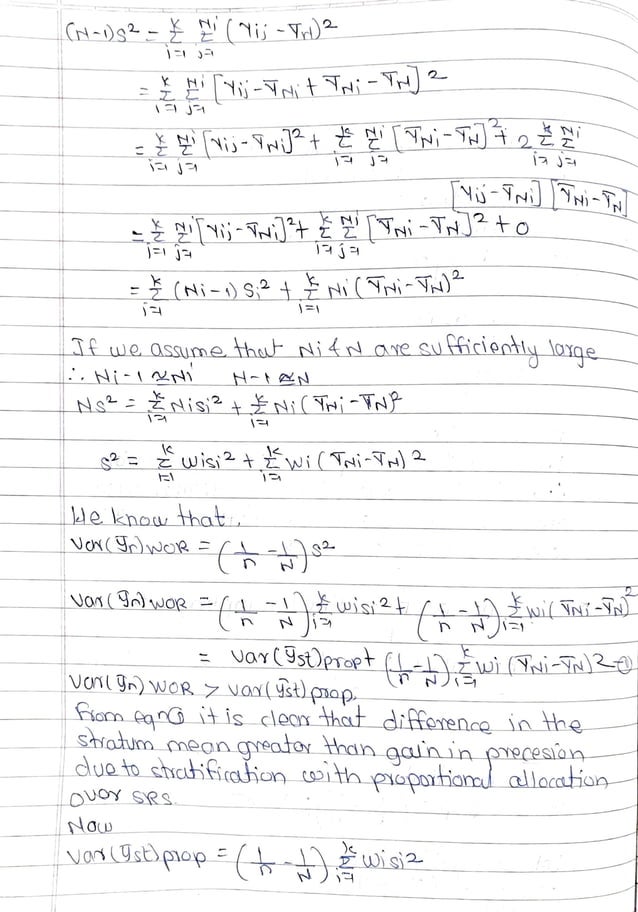 (N-1)S² = Σᵢ₌₁ᵏ Σⱼ₌₁ᴺⁱ (Yij - ȲN)²
= Σᵢ₌₁ᵏ Σⱼ₌₁ᴺⁱ [Yij - ȲNi + ȲNi - ȲN]²
= Σᵢ₌₁ᵏ Σⱼ₌₁ᴺⁱ [Yij - ȲNi]² + Σᵢ₌₁ᵏ Σⱼ₌₁ᴺⁱ [ȲNi - ȲN]² + 2 Σᵢ₌₁ᵏ Σⱼ₌₁ᴺⁱ
[Yij - ȲNi] [ȲNi - ȲN]
= Σᵢ₌₁ᵏ Σⱼ₌₁ᴺⁱ [Yij - ȲNi]² + Σᵢ₌₁ᵏ Σⱼ₌₁ᴺⁱ [ȲNi - ȲN]² + 0
= Σᵢ₌₁ᵏ (Ni - 1) Si² + Σᵢ₌₁ᵏ Ni (ȲNi - ȲN)²
If we assume that Ni & N are sufficiently large
∴ Ni - 1 ≈ Ni N - 1 ≈ N
NS² = Σᵢ₌₁ᵏ NiSi² + Σᵢ₌₁ᵏ Ni (ȲNi - ȲN)²
S² = Σᵢ₌₁ᵏ wisi² + Σᵢ₌₁ᵏ wi (ȲNi - ȲN)²
We know that,
Var(ȳn)WOR = (1/n - 1/N) S²
Var(ȳn)WOR = (1/n - 1/N) Σᵢ₌₁ᵏ wisi² + (1/n - 1/N) Σᵢ₌₁ᵏ wi (ȲNi - ȲN)²
= Var(ȳst)prop + (1/n - 1/N) Σᵢ₌₁ᵏ wi (ȲNi - ȲN)² - ①
Var(ȳn)WOR > Var(ȳst)prop.
from eqn ① it is clear that difference in the
stratum mean greater than gain in precesion
due to stratification with proportional allocation
over SRS.
Now
Var(ȳst)prop = (1/n - 1/N) Σᵢ₌₁ᵏ wisi²